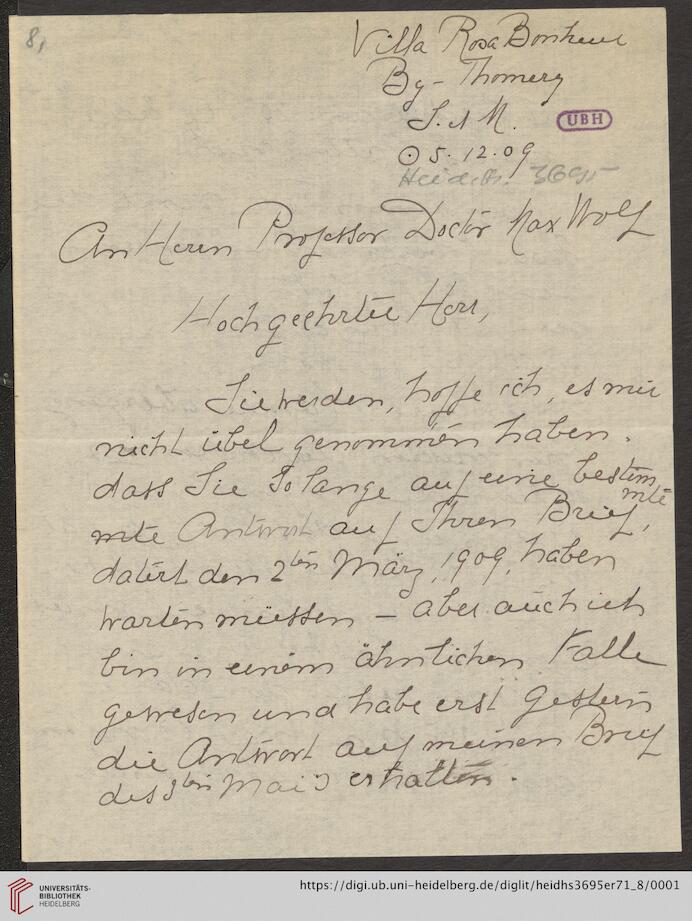 8,
Villa Rosa Bonheur
By-Thomery
S. et M.
UBH
⊙ 5. 12. 09
Heid. Hs. 3695
An Herrn Professor Doctor Max Wolf
Hochgeehrter Herr,
Sie werden, hoffe ich, es mir
nicht übel genommen haben.
dass Sie so lange auf eine bestim
mte
mte Antwort auf Ihren Brief,
datirt den 2ten März, 1909, haben
warten müssen – aber auch ich
bin in einem ähnlichen Falle
gewesen und habe erst gestern
die Antwort auf meinen Brief
des 3ten Mai's erhalten.
UNIVERSITÄTS-
BIBLIOTHEK
HEIDELBERG
https://digi.ub.uni-heidelberg.de/diglit/heidhs3695er71_8/0001